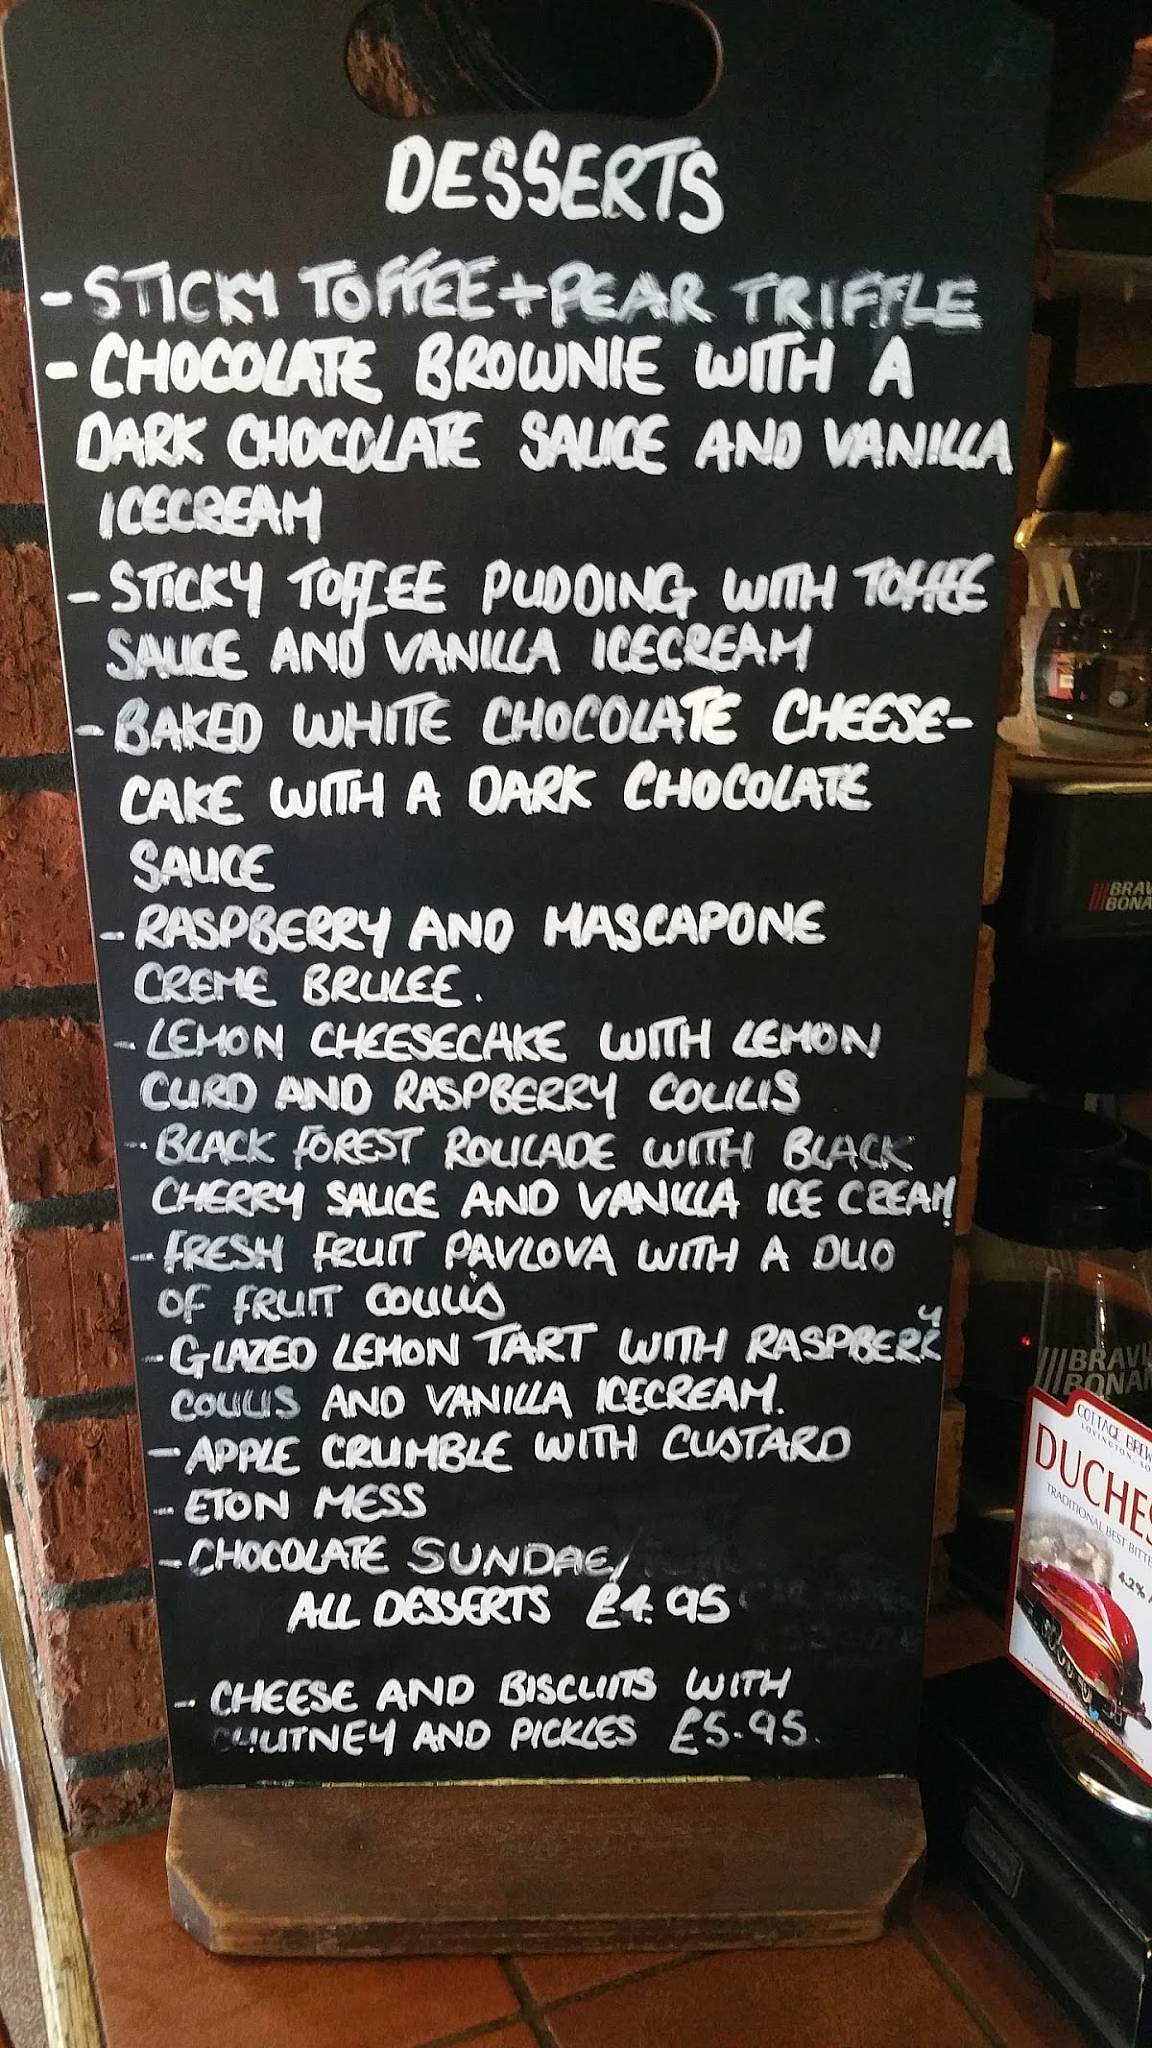 DESSERTS
- STICKY TOFFEE + PEAR TRIFFLE
- CHOCOLATE BROWNIE WITH A
DARK CHOCOLATE SAUCE AND VANILLA
ICECREAM
- STICKY TOFFEE PUDDING WITH TOFFEE
SAUCE AND VANILLA ICECREAM
- BAKED WHITE CHOCOLATE CHEESE-
CAKE WITH A DARK CHOCOLATE
SAUCE
- RASPBERRY AND MASCAPONE
CREME BRULEE.
- LEMON CHEESECAKE WITH LEMON
CURD AND RASPBERRY COULIS
- BLACK FOREST ROULADE WITH BLACK
CHERRY SAUCE AND VANILLA ICE CREAM
- FRESH FRUIT PAVLOVA WITH A DUO
OF FRUIT COULIS
- GLAZED LEMON TART WITH RASPBERRY
COULIS AND VANILLA ICECREAM.
- APPLE CRUMBLE WITH CUSTARD
- ETON MESS
- CHOCOLATE SUNDAE/
ALL DESSERTS £4.95
- CHEESE AND BISCUITS WITH
CHUTNEY AND PICKLES £5.95.
BRAVI
BONA
BRAVI
BONA
COTTAGE BREW
DUCHES
TRADITIONAL BEST BITTE
4.2%